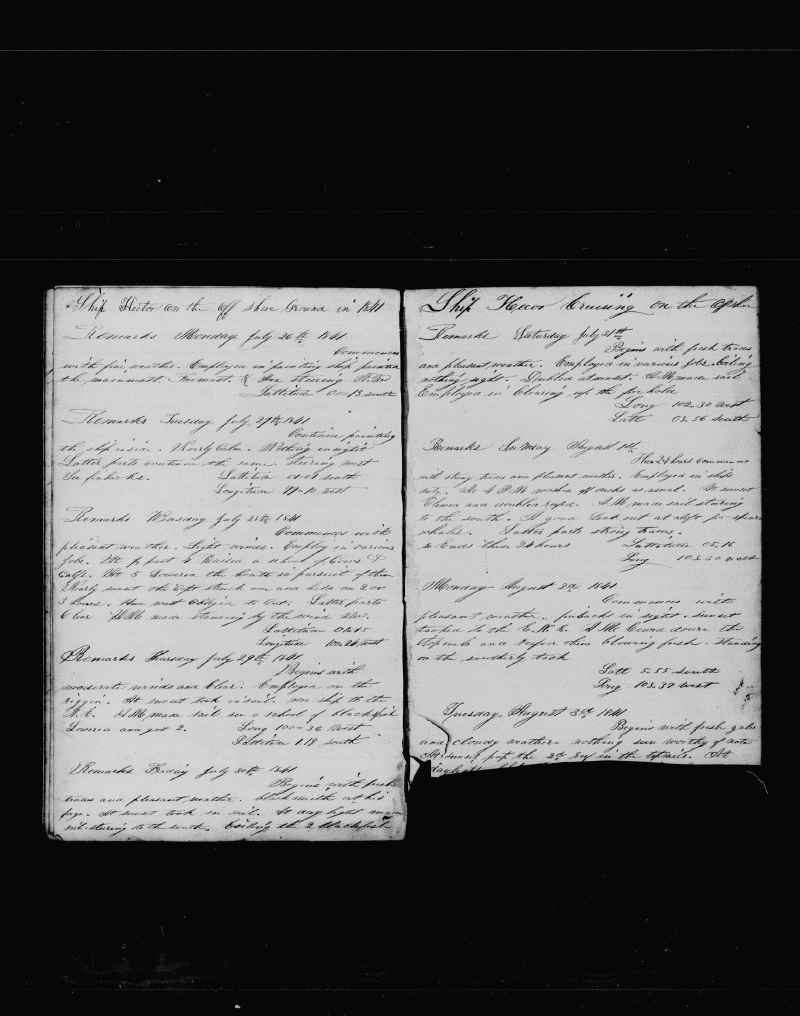 Ship Hector on the off shore Ground in 1841
Remarks Monday July 26th 1841
Commences
with fine weather. Employed in painting ship painted
the mainmast. Formast. & Steering
Lattitude 0-13 south
Remarks Tuesday July 27th 1841
Continue painting
the ship inside. Nearly Calm. Nothing in sight
Latter parts continue the same. Steering west
Lattitude south
Longitude west
Remarks Wensday July 28th 1841
Commences with
pleasant weather. Light winds. Employ in various
jobs. At past 4 Raised a school of Cows &
Calfs. At 5 Lowered the boats in pursuit of them
Nearly sunset the struck one and held on 2 or
3 hours. obliged to Cut. Latter parts
Clear AM made by the wind
Lattitude
Longitude 100.26 west
Remarks Thursday July 29th 1841
Begins with
moderate winds and Clear. Employed on the
riggin. At sunset took in sail. ship to the
N.E. AM made sail see a school of blackfish
Lowered and got 2. Long 100-36 West
Lattitude 1 19 south
Remarks Friday July 30th 1841
Begins with fresh
trades and pleasant weather. blacksmith at his
forge. At sunset took in sail. At day light made
sail staring to the south. boiling the 2 blackfish
Ship Hector Cruising on the Offshore
Remarks Saturday July 31th
Begins with fresh trades
and pleasant weather. Employed in various jobs. boiling
nothing sight. Dubled at sunset. AM made sail
Employed in Clearing up the fore hold
Long 102.30 West
Latt 03.56 south
Remarks Sunday August 1th
These 24 hours commences
with strong trades and pleasant weather. Employed in ship
duty. At 4 PM washed of decks as usual. At sunset
and double reefed. AM made sail staring
to the south. Look out at aloft for sperm
whales. Latter parts strong trades.
so Ends these 24 hours Lattitude 05.16
Long 103.30 west
Monday August 2th 1841
Commences with
pleasant weather. finbacks in sight. sunset
to the E.N.E. AM the
topsails and Reefed them blowing fresh. Standing
on the southerly tack
Latt 5.55 south
Long 103.37 west
Tuesday August 3d 1841
Begins with fresh gales
and cloudy weather. nothing seen worthy of note
At sunset put the 3d Reef in the topsails. At